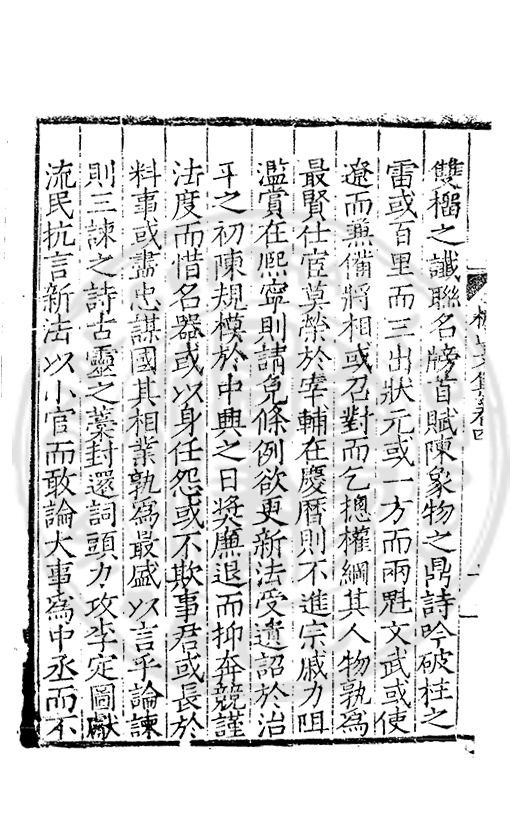 雙櫓之讖聯名牓首賦陳象物之鼎詩吟破柱之
雷或百里而三出狀元或一方而兩魁文武或使
遼而兼備將相或召對而乞摠權綱其人物孰爲
最賢仕宦莫榮於宰輔在慶曆則不進宗戚力阻
濫賞在熈寧則請免條例欲更新法受遺詔於治
平之初陳規模於中興之日奬廉退而抑奔競謹
法度而惜名器或以身任怨或不欺事君或長於
料事或盡忠謀國其相業孰爲最盛以言乎論諫
則三諫之詩古靈之藁封還詞頭力攻李定圖獻
流民抗言新法以小官而敢論大事爲中丞而不